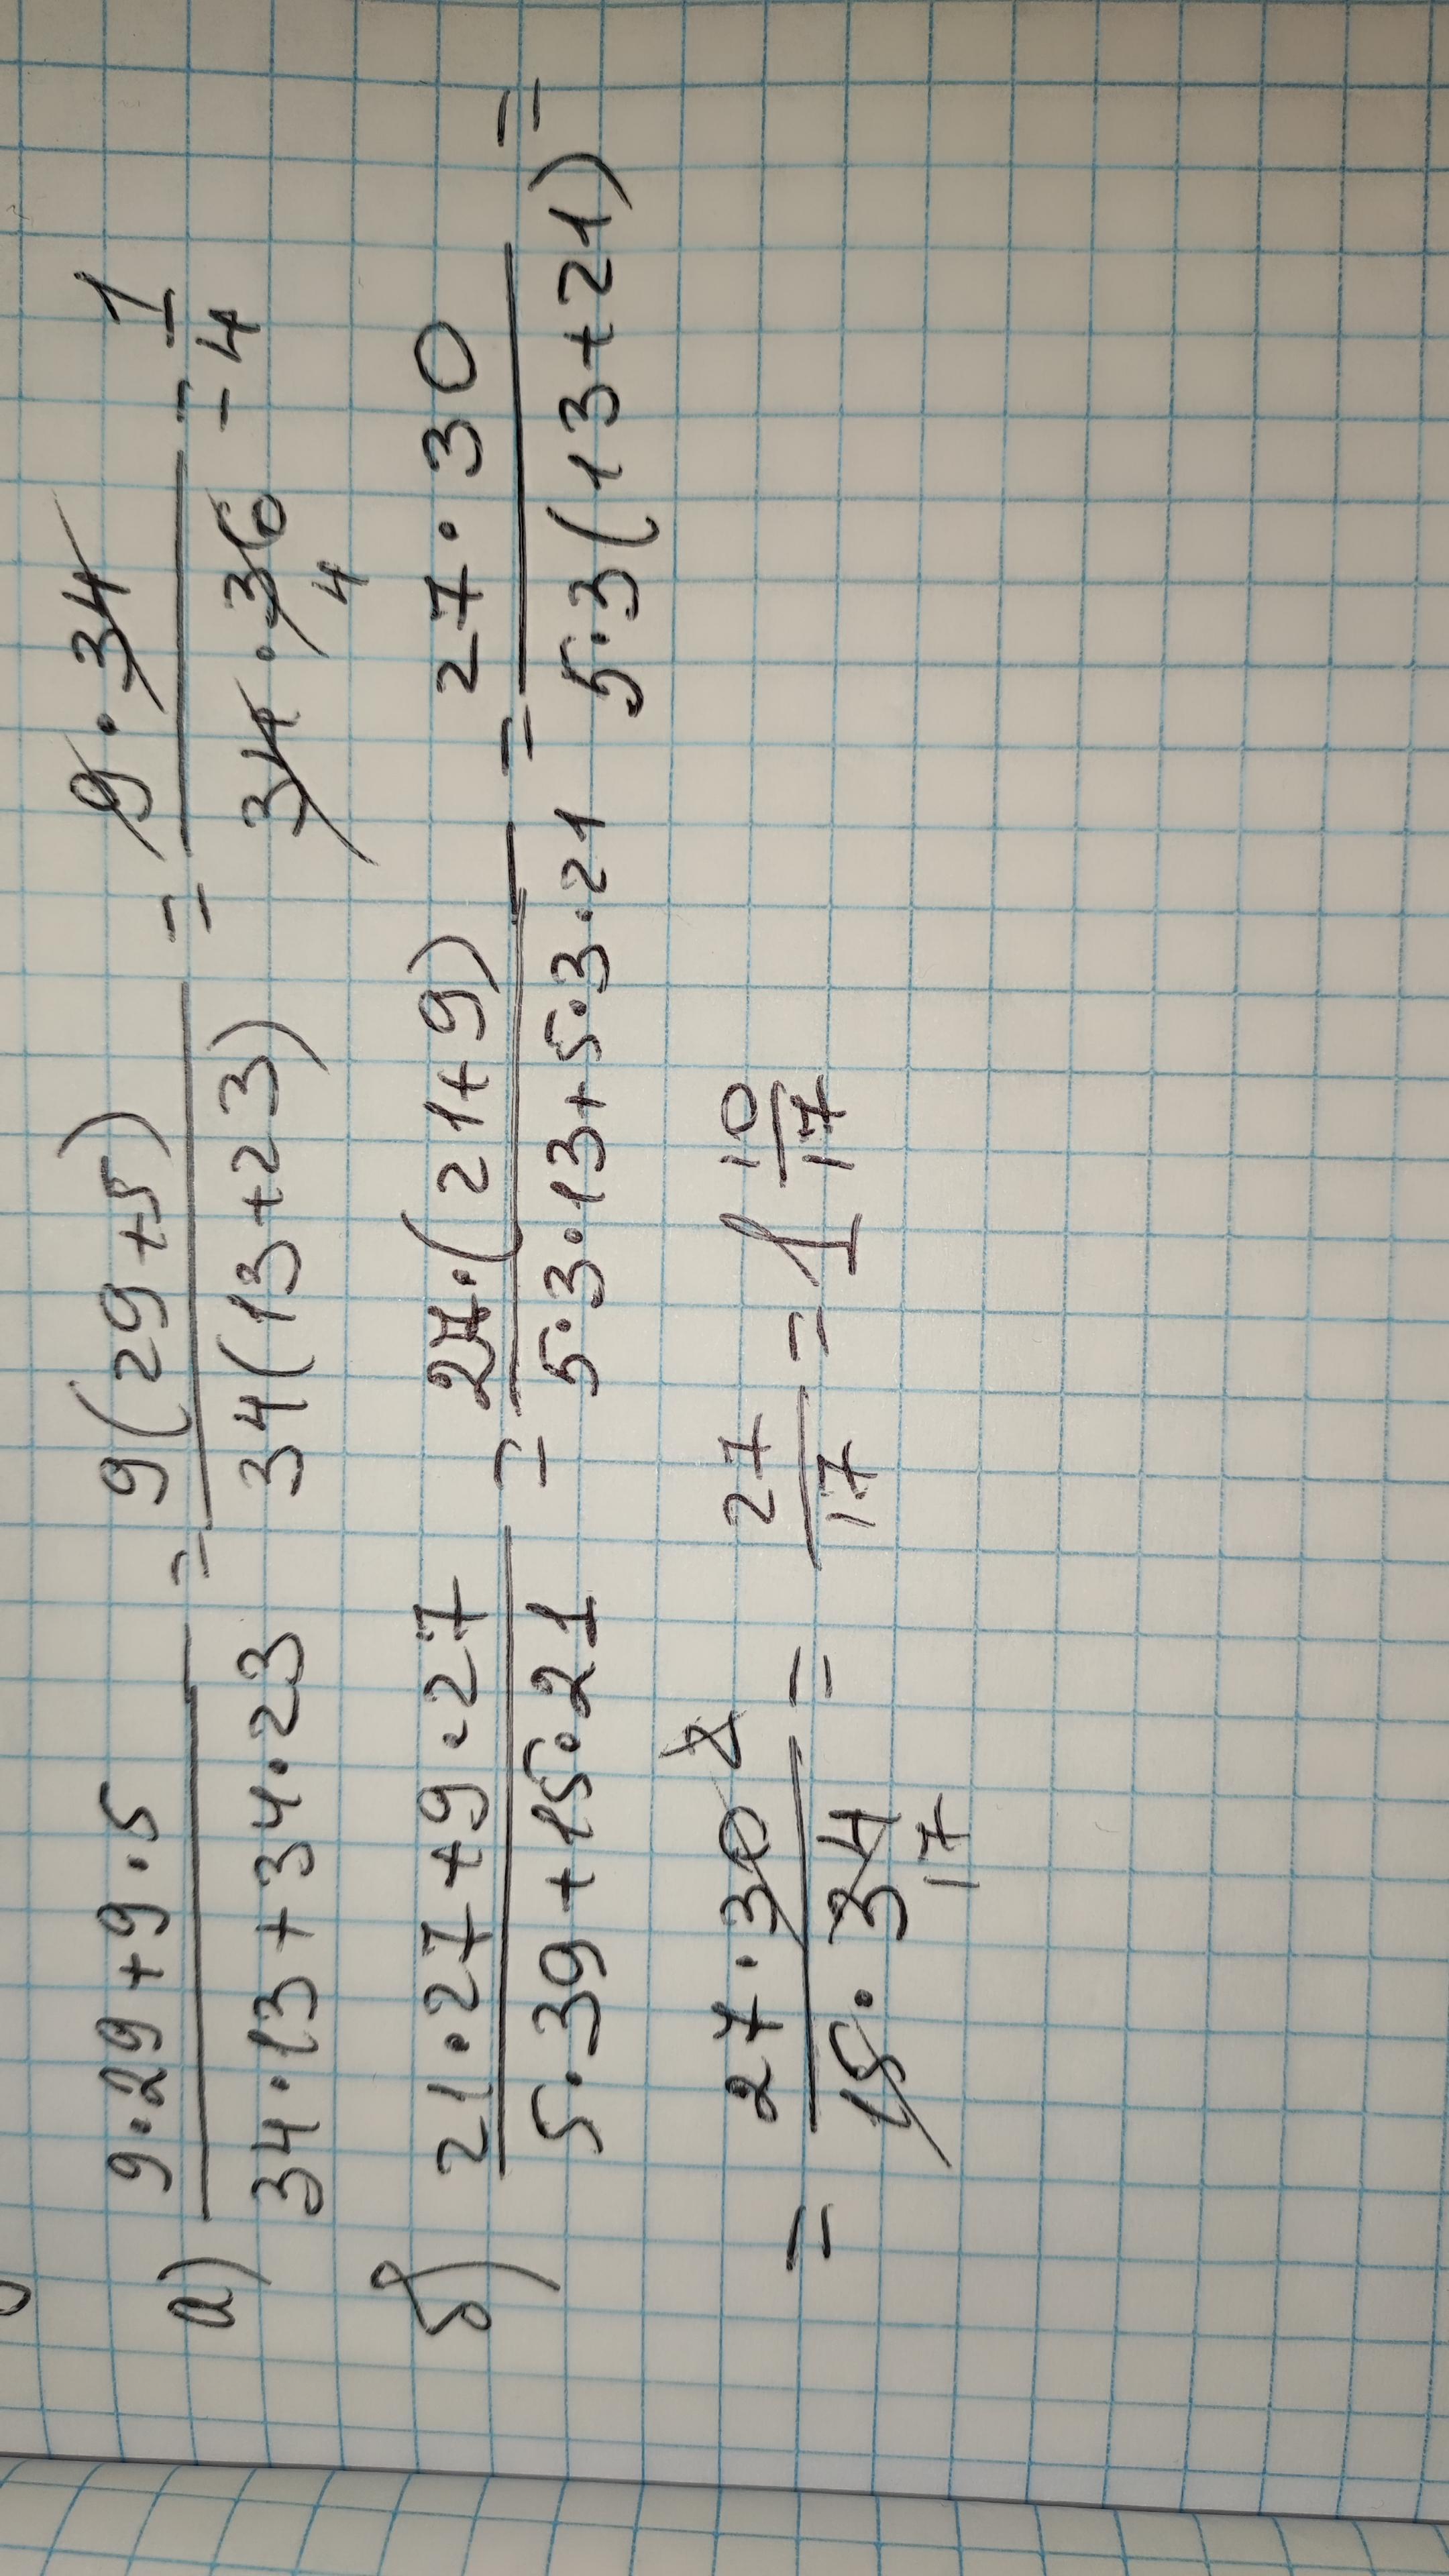 а) (9·29+9·5)/(34·13+34·23) = 9(29+5)/34(13+23) = (9·34)/(34·36) = 1/4
4
б) (21·27+9·27)/(5·39+15·21) = 27·(21+9)/(5·3·13+5·3·21) = 27·30/5·3(13+21) =
= (27·30 2)/(15·34 17) = 27/17 = 1 10/17